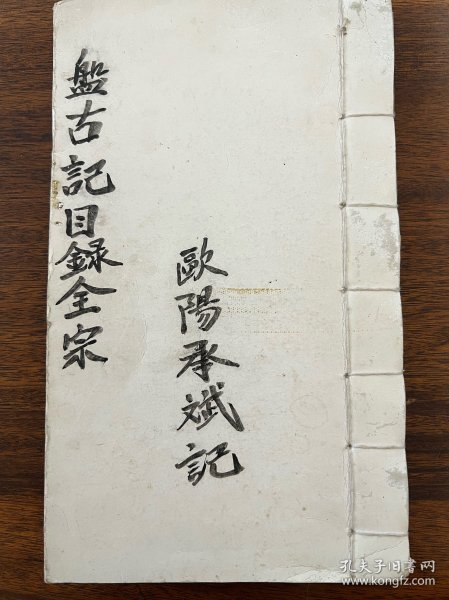 盤古記目録全宗
歐陽承斌記
孔夫子旧书网
www.kongfz.com